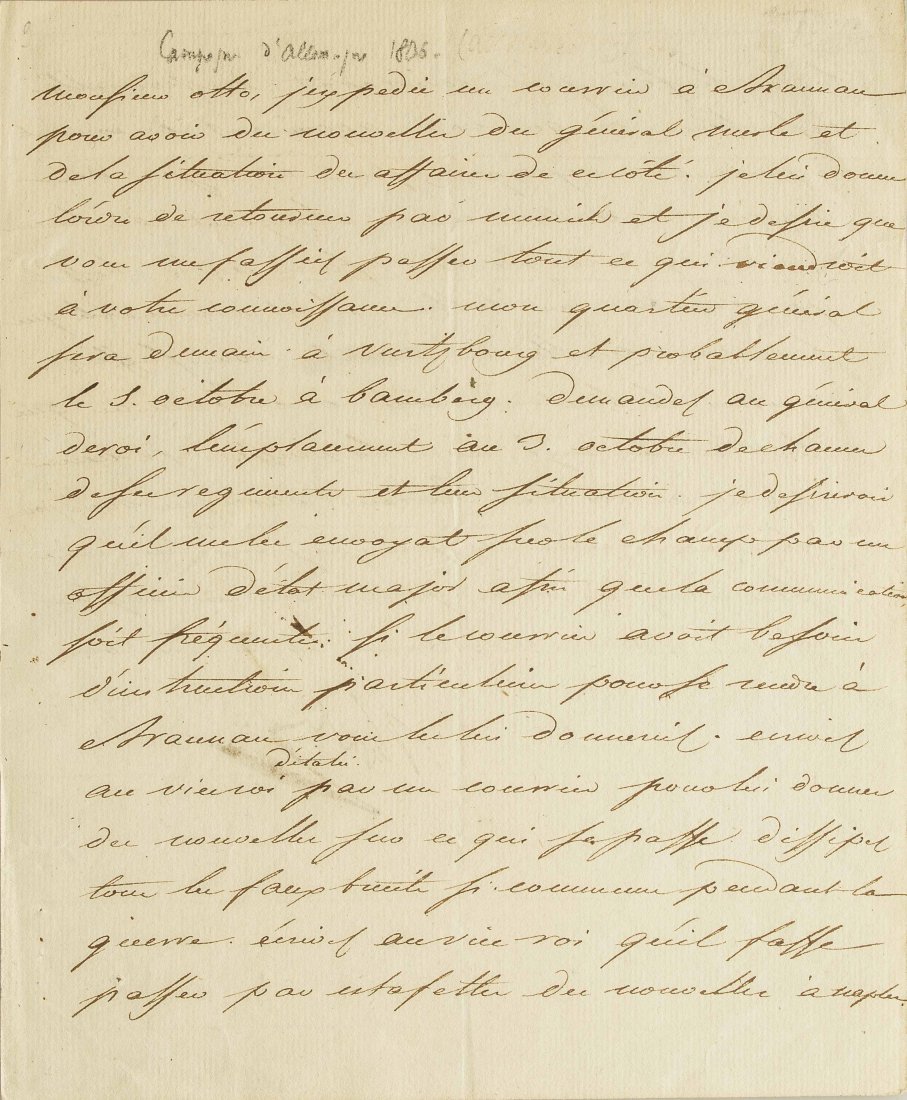 Campagne d'Allemagne 1806.
monsieur otto, j'expedie un courrier à Braunau
pour avoir des nouvelles du général merle et
de la situation des affaires de ce côté. je lui donne
l'ordre de retourner par munich et je desire que
vous me fassiez passer tout ce qui viendroit
à votre connoissance. mon quartier général
sera demain à Vurtzbourg et probablement
le 5. octobre à bamberg. demandez au général
deroi, l'emplacement au 3. octobre de chacun
de ses regiments et leur situation. je desirerois
qu'il me les envoyat sur le champ par un
officier d'état major afin que la communication
soit fréquente. si le courrier avoit besoin
d'instructions particulieres pour se rendre à
Braunau vous les lui donneriez. ecrivez
d'italie.
au viceroi par un courrier pour lui donner
des nouvelles sur ce qui se passe. dissipez
tous les faux bruits si communs pendant la
guerre. écrivez au vice roi qu'il fasse
passer par estafettes des nouvelles à naples.